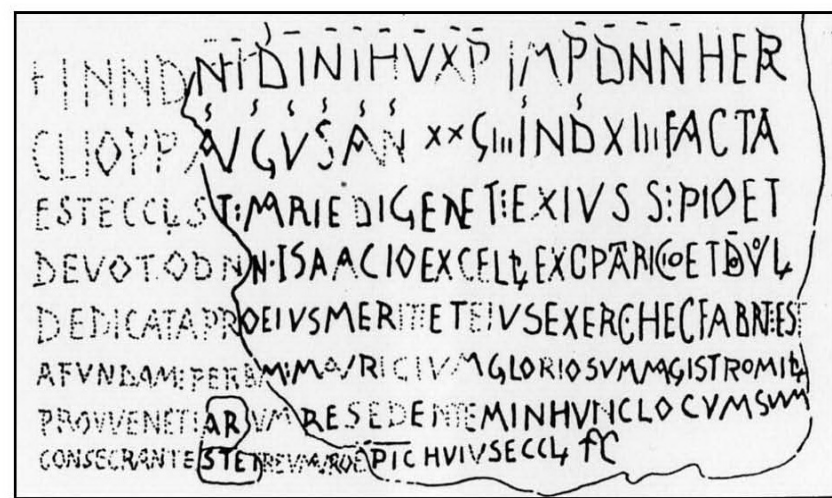 +INNDNIDINIHVXPIMPDNNHER
CLIOPPAVGVSAN XXϛIII INDXIIIFACTA
ESTECCLST:MARIEDIGENET:EXIVSSS:PIOET
DEVOT.ODNN·ISAACIOEXCELLEXCPATRICIOETDOVL
DEDICATAPROEIVSMERITIETEIVSEXERCHECFABRT:EST
AFVNDAM:PERBM:MAVRICIVMGLORIOSVMMAGISTROMIL
PROVVENETIARVMRESEDENTEMINHVNCLOCVMSVM
CONSECRANTESTET EPICHVIVSECCL FC